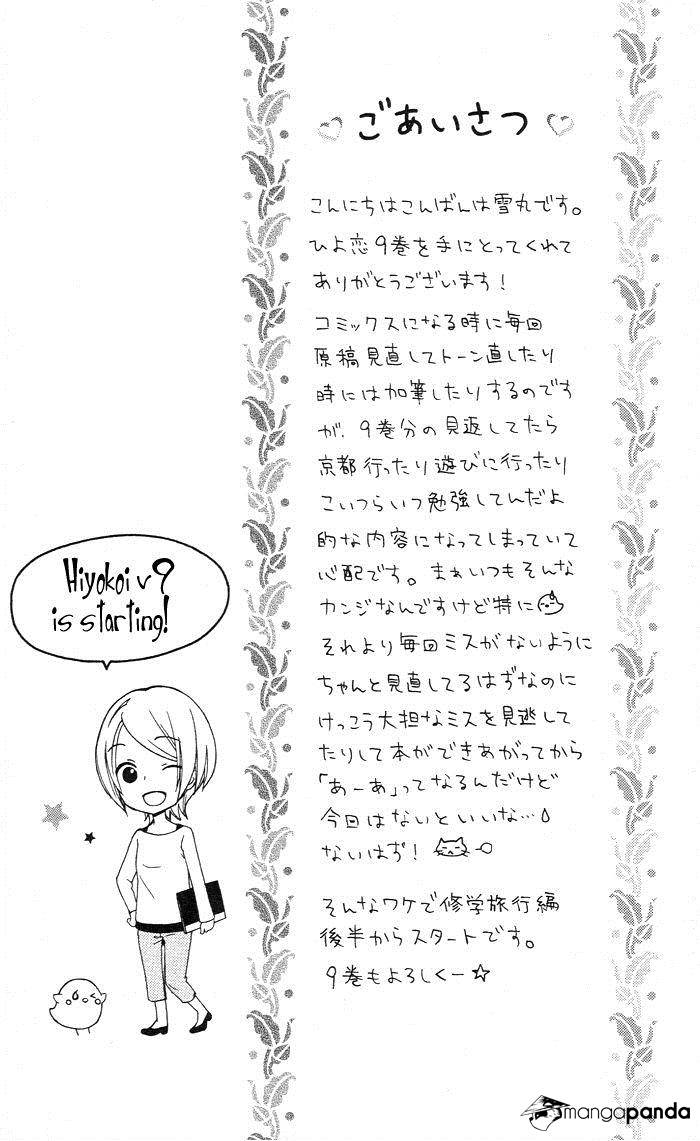 ごあいさつ
こんにちはこんばんは雪丸です。
ひよ恋9巻を手にとってくれて
ありがとうございます!
コミックスになる時に毎回
原稿見直してトーン直したり
時には加筆したりするのです
が、9巻分の見返してたら
京都行ったり遊びに行ったり
こいつらいつ勉強してんだよ
的な内容になってしまっていて
心配です。まぁいつもそんな
カンジなんですけど特に
それより毎回ミスがないように
ちゃんと見直してるはずなのに
けっこう大担なミスを見逃して
たりして本ができあがってから
「あーあ」ってなるんだけど
今回はないといいな…
ないはず!
そんなワケで修学旅行編
後半からスタートです。
9巻もよろしくー☆
Hiyokoi v9
is starting!
mangapanda